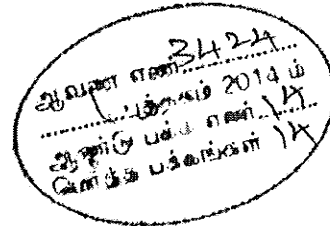 ஆவண எண் 3424
1 புத்தகம் 2014 ம்
ஆண்டு பக்க எண் 14
பக்கங்கள் 14